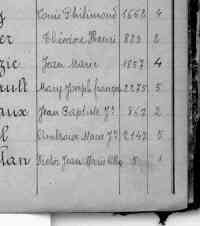 Louis Philimond 1662 4
er Théodore Henri 823 2
zie Jean Marie 1857 4
ault Mary Joseph françois 2275 5
aux Jean Baptiste Jh 862 2
l Ambroise Marie Jh 2142 5
lan Victor Jean Marie 5 1